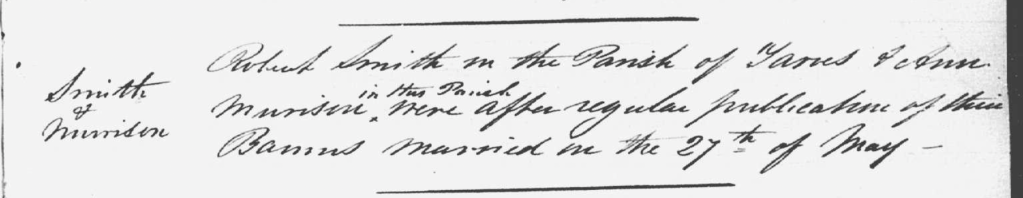 Smith
&
Murison
Robert Smith in the Parish of Tarves & Ann
Murison ^in this Parish were after regular publication of their
Banns married on the 27th of May —